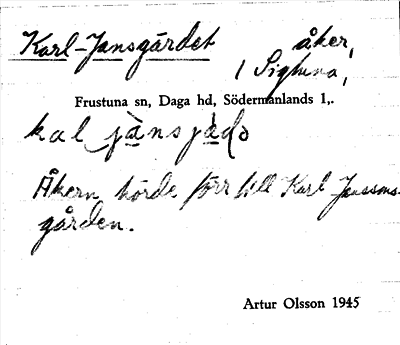 Karl-Jansgärdet åker,
1 Sigtuna,
Frustuna sn, Daga hd, Södermanlands l,.
kal jànsjäḍə
Åkern hörde förr till Karl Janssons-
gården.
Artur Olsson 1945